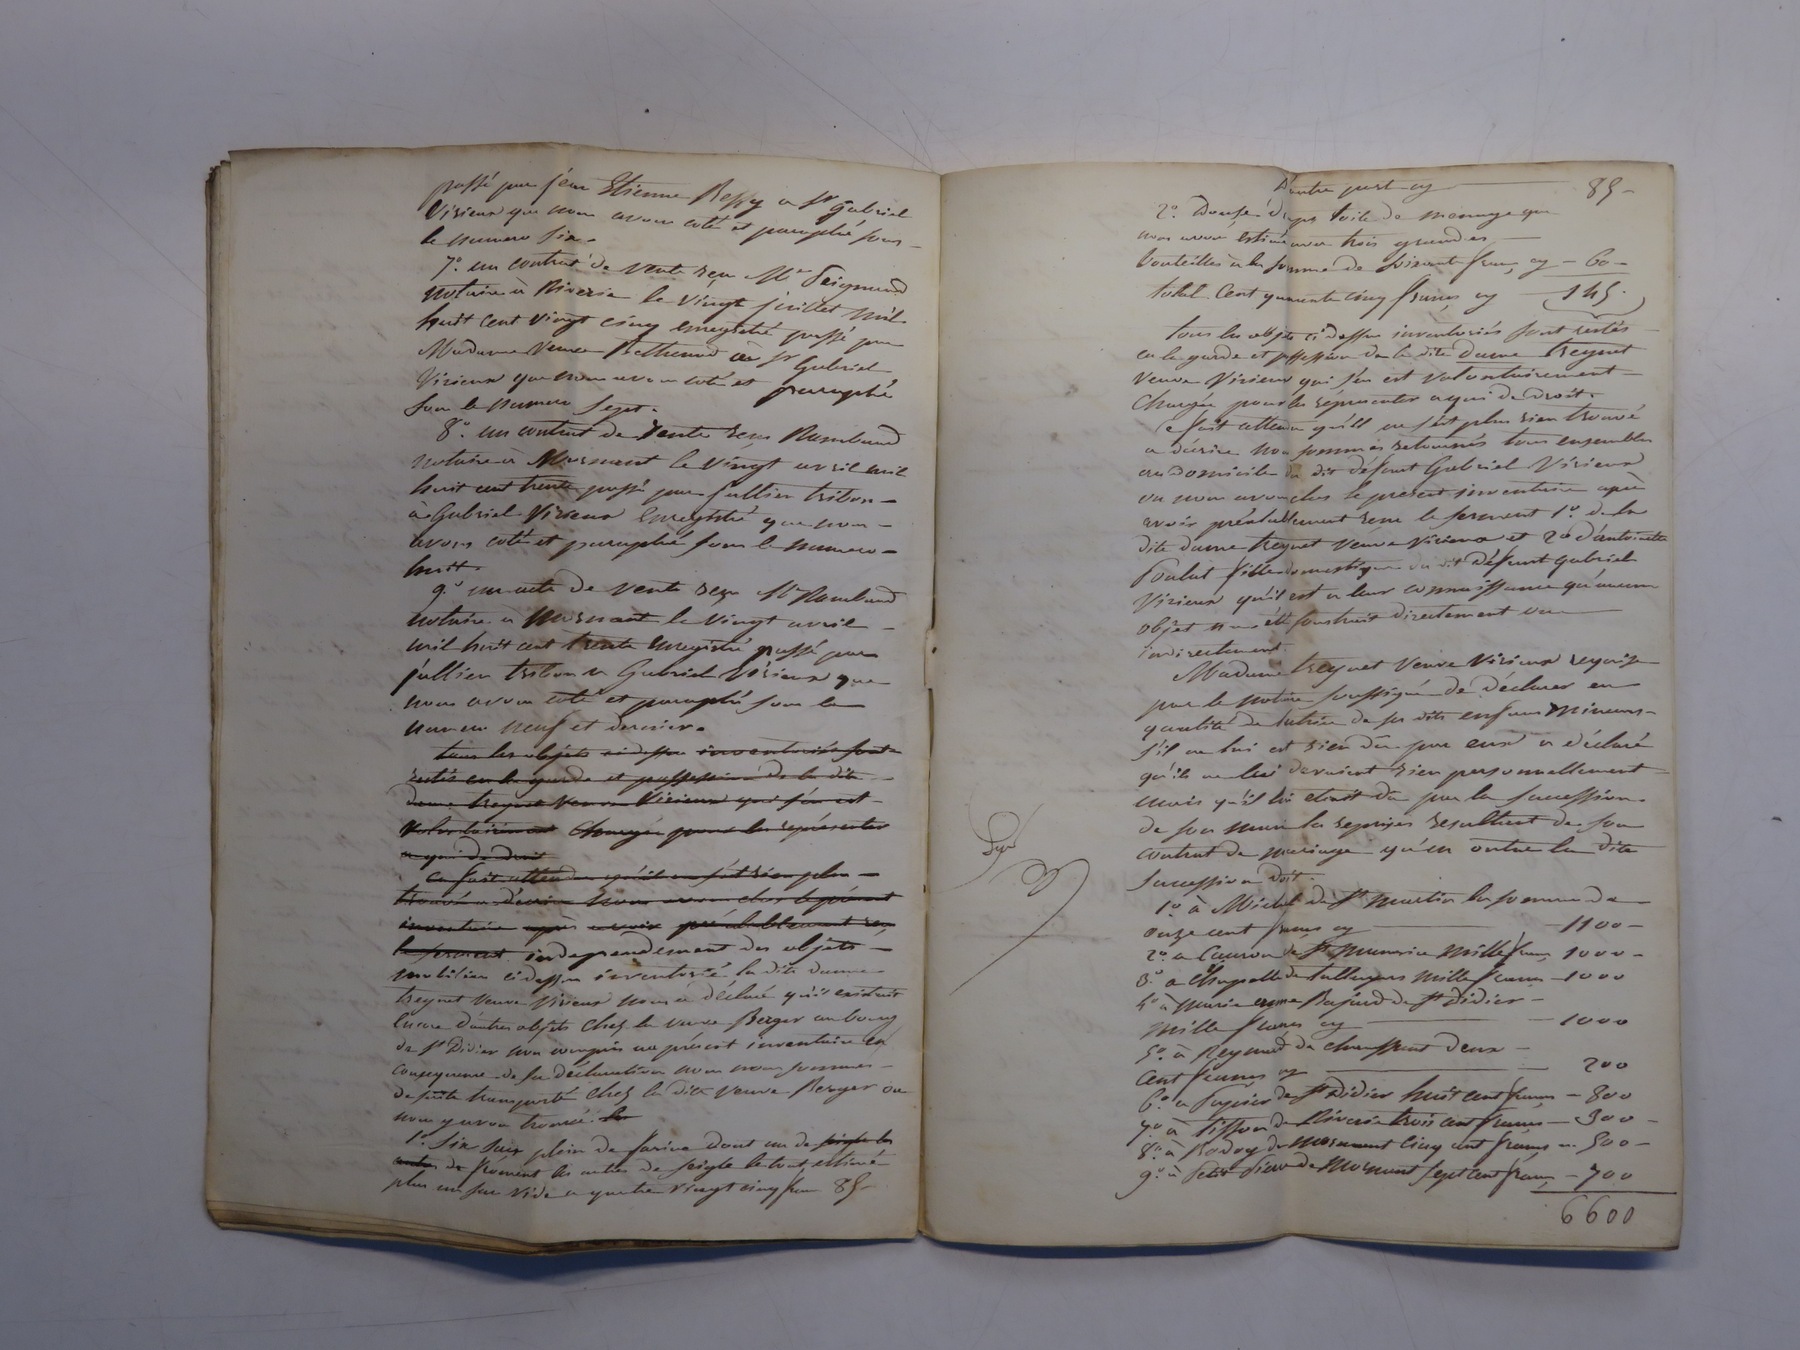 passé par jean Etienne Ressy a Sr Gabriel
Virieux que nous avons coté et paraphé sous
le numero six.
7o. un contrat de vente reçu Me Peigneaud
notaire à Riverie le vingt juillet mil
huit cent vingt cinq enregistré passé par
Madame veuve Bethenod au Sr Gabriel
Virieux que nous avons coté et paraphé
sous le numero sept.
8o. un contrat de vente reçu Rambaud
notaire à Mornant le vingt avril mil
huit cent trente passé par jullien tribon
à Gabriel Virieux Enregistré que nous
avons coté et paraphé sous le numero
huit.
9o un acte de vente reçu Me Rambaud
notaire a Mornant le vingt avril
mil huit cent trente enregistré passé par
jullien tribon a Gabriel Virieux que
nous avons coté et paraphé sous le
numero neuf et dernier.
tous les objets ci dessus inventoriés sont
restés en la garde et possession de la dite
dame treynet veuve Virieux qui s'en est
volontairement chargée pour les représenter
a qui de droit
Ce fait attendu qu'il ne s'est rien plus
trouvé a décrire nous avons clos le présent
inventaire après avoir préalablement reçu
le serment independement des objets
mobiliers ci dessus inventorié la dite dame
treynet veuve Virieux nous a déclaré qu'il existait
encore d'autres objets chez la veuve Berger au bourg
de St Didier non compris au présent inventaire en
consequence de sa déclaration nous nous sommes
de suite transporté chez la dite veuve Berger ou
nous y avons trouvé les
1o. Six sacs plein de farine dont un de
de froment les autres de seigle le tout estimé
plus un sac vide a quatre vingt cinq fran 85
D'autre part cy 85
2o. Douse draps toile de menage que
nous avons estimé avec trois grandes
bouteilles à la somme de soixante francs cy 60
total Cent quarante cinq francs cy 145.
tous les objets ci dessus inventoriés sont restés
en la garde et possession de la dite dame treynet
veuve Virieux qui s'en est volontairement
chargée pour les représenter a qui de droit.
Ce fait attendu qu'il ne s'est plus rien trouvé
a décrire nous sommes retournés tous ensembles
au domicile du dit défunt Gabriel Virieux
ou nous avons clos le present inventaire après
avoir préalablement reçu le serment 1o. de la
dite dame treynet veuve Virieux et 2o d'antoinette
Poulat fille domestique du dit défunt Gabriel
Virieux qu'il est a leur connaissance qu'aucun
objet n'a été soustrait directement ou
indirectement.
Madame treynet veuve Virieux requise
par le notaire soussigné de déclarer en
qualité de tutrice de ses dits enfans mineurs
s'il ne lui est rien dû par eux a déclaré
qu'ils ne lui devaient rien personnellement
mais qu'il lui etait dû par la succession
de son mari les reprises resultant de son
contrat de mariage qu'en outre la dite
succession doit.
1o. à Michel de St Martin la somme de
onze cent francs cy 1100
2o. a Cauron de St Maurice mille fran 1000
3o. a Chapelle de talluyers mille francs 1000
4o à Marie Bajard de St Didier
mille francs cy 1000
5o. à Reynard de chaussant deux
cent francs cy 200
6o. a de St Didier huit cent francs 800
7o à Tisson de Riverie trois cent francs 300
8o. à de Mornant cinq cent francs 500
9o. à Petit de Mornant sept cent francs 700
6600